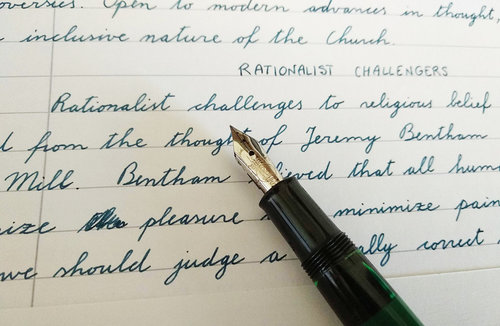 oversies. Open to modern advances in thought,
inclusive nature of the Church.
RATIONALIST CHALLENGERS
Rationalist challenges to religious belief
from the thought of Jeremy Bentham
Mill. Bentham ieved that all hum
ize pleasure minimize pain
we should judge a ally correct